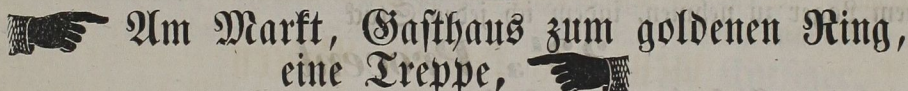 Am Markt, Gasthaus zum goldenen Ring,
eine Treppe,